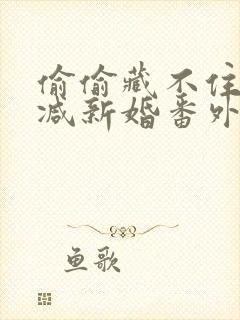 偷偷藏不住
减新婚番外
鱼歌